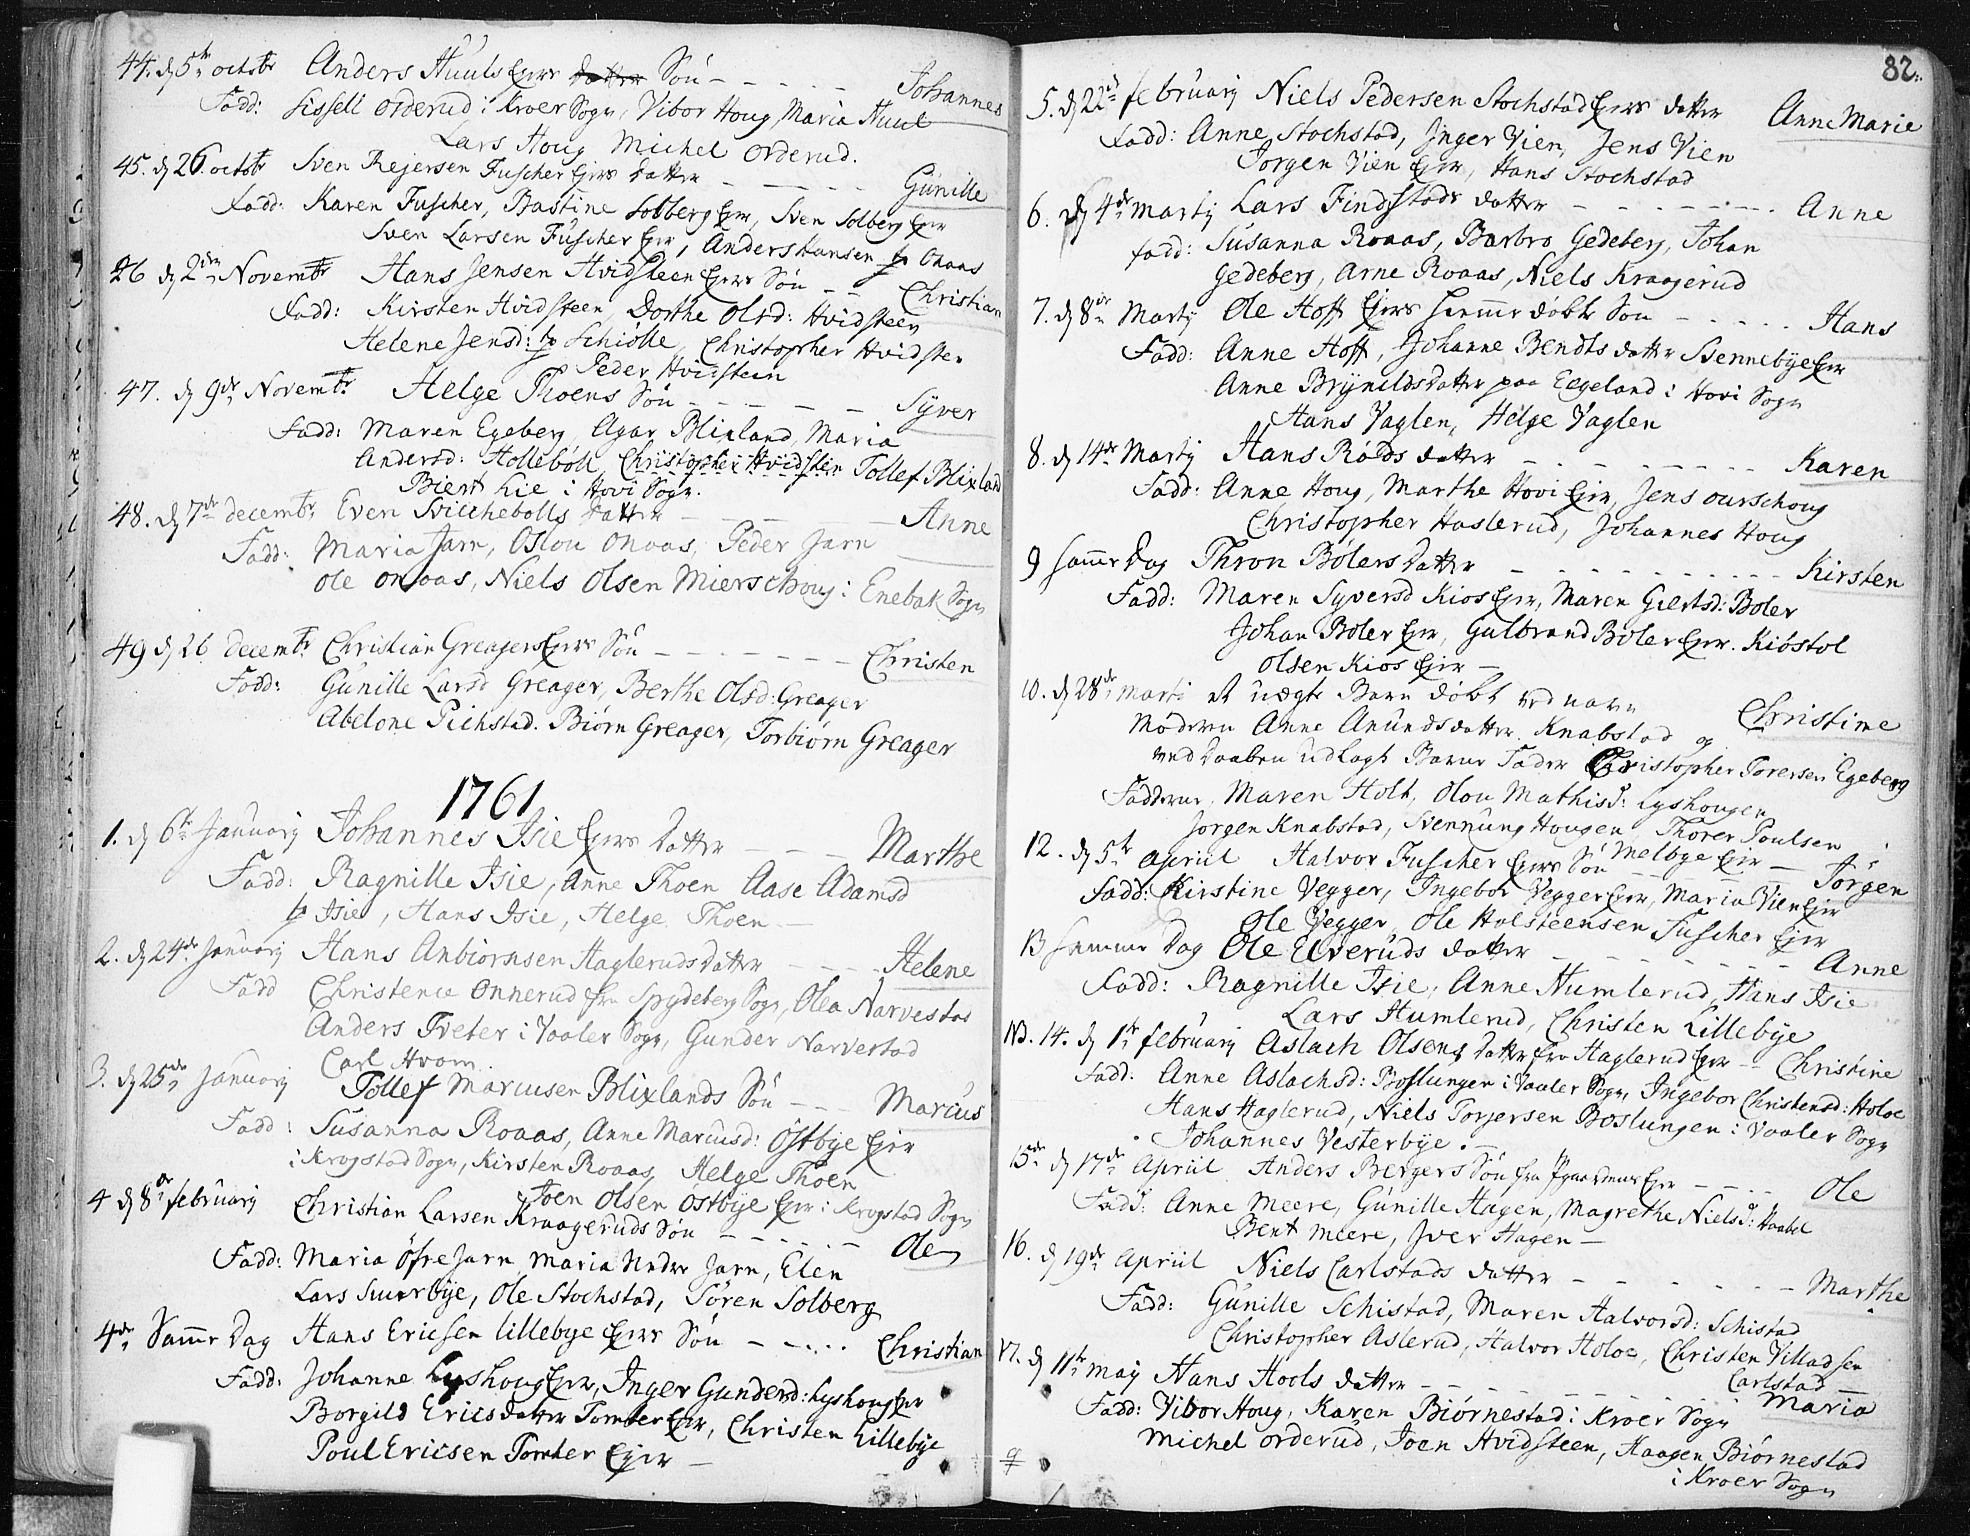 44. d 5te octobr Anders Huuls Ejers datter Søn - - - - Johannes
Fadd: Sissell Orderud i Kroer Sogn, Vibor Houg, Maria Huul
Lars Houg Michel Orderud.
45. d 26. octobr Sven Rejersen Fuscher Ejers datter - - - - Gunille
Fadd: Karen Fuscher, Bastine Solberg Ejer, Sven Solberg Ejer
Sven Larsen Fuscher Ejer, Anders Hansen Onaas
46 d 2den Novembr Hans Jensen Hvidsteen Ejers Søn - - Christian
Fadd: Kirsten Hvidsteen, Dorthe Olsd: Hvidsteen
Helene Jensd: Schiølle, Christopher Hvidsten
Peder Hvidsteen
47. d 9de Novembr Helge Thoens Søn - - - - - Syver
Fadd: Maren Egeberg, Agar Blixland, Maria
Andersd: Hollebøll, Christopher Hvidsten Tollef Blixland
Bient Lie i Hovi Sogn.
48. d 7de decembr Even Svicchebolls datter - - - - Anne
Fadd: Maria Jarn, Oslou Onaas, Peder Jarn
Ole Onaas, Niels Olsen Mierschoug i Enebak Sogn
49 d 26 decembr Christian Greagers Ejers Søn - - - - - - Christen
Fadd: Gunille Larsd Greager, Berthe Olsd: Greager
Abelone Pichstad. Biørn Greager, Torbiørn Greager
1761
1. d 6te January Johannes Isie Ejers datter - - - Marthe
Fadd: Ragnille Isie, Anne Thoen Aase Adamsd
Isie, Hans Isie, Helge Thoen -
2. d 24de January Hans Anbiørnsen Haglerudsdatter - - - Helene
Fadd Christence Onnerud fra Spydeberg Sogn, Olea Narvestad
Anders Tveter i Vaaler Sogn, Gunder Narvestad
Carl Hvom.
3. d 25de January Tollef Marcusen Blixlands Søn - - - Marcus
Fadd: Susanna Roaas, Anne Marcusd: Østbye Ejer
i Krogstad Sogn, Kirsten Roaas, Helge Thoen
Joen Olsen Østbye Ejer i Krogstad Sogn
4 d 8de february Christian Larsen Kraageruds Søn - - - - - Ole
Fadd: Maria Øfre Jarn Maria Nedre Jarn, Elen
Lars Smerbye, Ole Stochstad, Søren Solberg
4de Samme Dag Hans Ericsen Lillebye Ejers Søn - - . . . Christian
Fadd: Johanne Lyshoug Ejer, Inger Gundersd: Lyshoug Ejer
Borgild Ericsdatter Tomter Ejer, Christen Lillebye
Poul Ericsen Tomter Ejer -
82.
5. d 22de february Niels Pedersen Stochstad Ejers datter Anne Marie
Fadd: Anne Stochstad, Inger Vien, Jens Vien
Jorgen Vien Ejer, Hans Stochstad
6. d 4de Marty Lars Findstads datter - - - - - - - Anne
Fadd: Susanna Roaas, Barbro Gedeberg, Johan
Gedeberg, Arne Roaas, Niels Kraagerud
7. d 8de Marty Ole Hoff Ejers hiemmedøbte Søn - - - - - Hans
Fadd: Anne Hoff, Johanne Bendtsdatter Svennebye Ejer
Anne Brynildsdatter paa Eegeland i Hovi Sogn
Hans Vaglen, Helge Vaglen
8. d 14de Marty Hans Røeds datter - - - - - - - - Karen
Fadd: Anne Houg, Marthe Hovi Ejer, Jens Ourschoug
Christopher Haslerud, Johannes Houg
9 Samme Dag Thron Bølers datter - - - - - - - - - - Kirsten
Fadd: Maren Syversd Kios Ejer, Maren Giertsd: Bøler
Johan Bøler Ejer, Gulbrand Bøler Ejer. Kiøstol
Olsen Kios Ejer -
10. d 28de Marti et uægte Barn døbt ved navn Christine
Moderen Anne Anundsdatter Knabstad og
ved Daaben udlagt Barne Fader Christopher Torersen Egeberg
Fadderne, Maren Holt, Olou Mathisd: Lyshougen
Jørgen Knabstad, Svennung Hougen Thorer Poulsen
Melbye Ejer -
12. d 5te Apriil Halvor Fuscher Ejers Søn - - - - Jørgen
Fadd: Kirstine Vegger, Ingebor Vegger Ejer, Maria Vien Ejer
Ole Vegger Ole Holsteensen Fuscher Ejer
13 Samme Dag Ole Elveruds datter - - - - - - - - Anne
Fadd: Ragnille Isie, Anne Humlerud, Hans Isie
Lars Humlerud, Christen Lillebye
NB. 14. d 1te february Aslach Olsens datter fra Haglerud Ejer - - Christine
Fadd: Anne Aslachsd: Boslungen i Vaaler Sogn, Ingebor Christensd: Holoe
Hans Haglerud, Niels Torgersen Boslungen i Vaaler Sogn
Johannes Vesterbye.
15de d 17de Apriil Anders Bergers Søn fra Ejer - - - - Ole
Fadd: Anne Meere, Gunille Hagen, Magrethe Nielsd: Haabel
Bent Meere, Iver Hagen -
16. d 19de Apriil Niels Carlstads datter - - - - - - - Marthe
Fadd: Gunille Schistad, Maren Halvorsd: Schistad
Christopher Aslerud, Halvor Holoe, Christen Villadsen
Carlstad -
17. d 11te May Hans Hools datter - - - - - - - - Maria
Fadd: Vibor Houg, Karen Biørnestad i Kroer Sogn
Michel Orderud, Joen Hvidsteen, Haagen Biørnestad
i Kroer Sogn